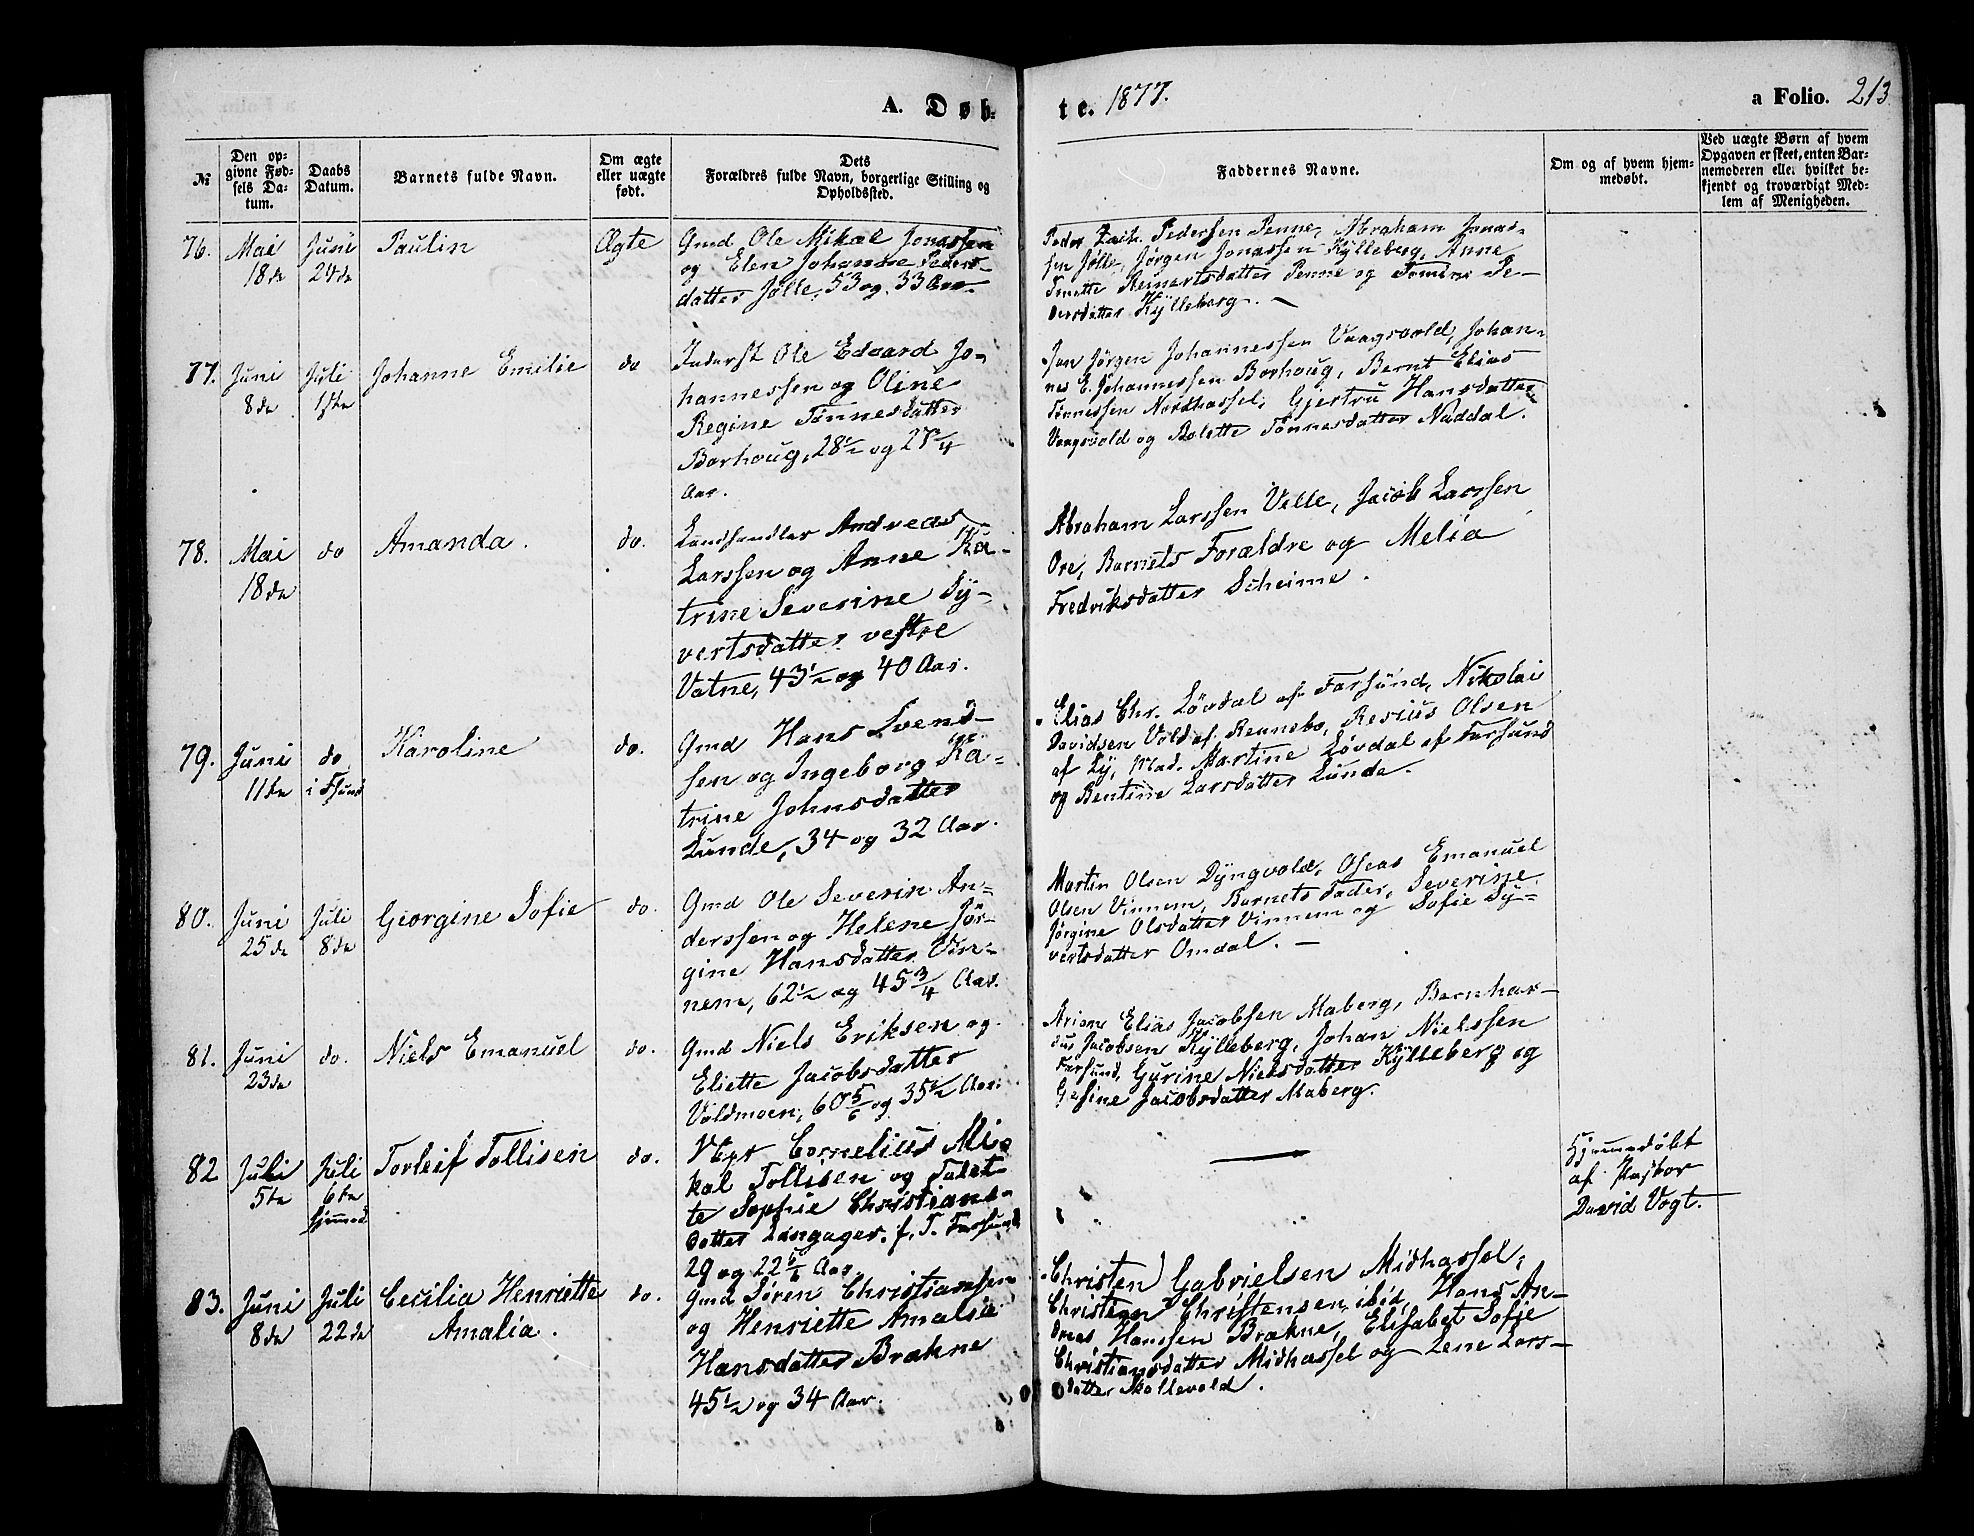 A. Døb-
te. 1877.
a Folio. 213.
№
Den op-
givne Fød-
sels Da-
tum.
Daabs
Datum.
Barnets fulde Navn.
Om ægte
eller uægte
født.
Dets
Forældres fulde Navn, borgerlige Stilling og
Opholdssted.
Faddernes Navne.
Om og af hvem hjem-
medøbt.
Ved uægte Børn af hvem
Opgaven er skeet, enten Bar-
nemoderen eller hvilket be-
kjendt og troværdigt Med-
lem af Menigheden.
76.
Mai
18de
Juni
24de
Paulin
Ægte
Gmd Ole Mikal Jonassen
og Elen Johanne Peders-
datter Jølle, 53 og 33 Aar.
Peder Zach. Pedersen Penne, Abraham Jonas-
sen Jølle, Jørgen Jonassen Kylleberg, Anne
Tonette Reinertsdatter Penne og Tomine Pe-
dersdatter Kylleberg. —
77.
Juni
8de
Juli
1ste
Johanne Emilie
do
Inderst Ole Edvard Jo-
hannessen og Oline
Regine Tønnesdatter
Borhoug, 28½ og 27¾
Aar.
Jon Jørgen Johannessen Vaagsvold, Johan-
nes E. Johannessen Borhoug, Bernt Elias
Tønnessen Nordhassel, Gjertru Hansdatter
Vaagsvold og Bolette Tønnesdatter Nuddal.
78.
Mai
18de
do
Amanda.
do.
Landhandler Andreas
Larssen og Anne Ka-
trine Severine Sy-
vertsdatter vestre
Vatne, 43½ og 40 Aar.
Abraham Larssen Velle, Jacob Larssen
Ore, Barnets Forældre og Melia
Fredriksdatter Scheime.
79.
Juni
11te
do
i Fsund
Karoline
do.
Gmd Hans Svend-
sen og Ingeborg Ka-
trine Johnsdatter
Lunde, 34 og 32 Aar.
Elias Chr. Løvdal af Farsund, Nikolai
Davidsen Vold af Rennebo, Resius Olsen
af Ly, Mad. Martine Løvdal af Farsund
og Bentine Larsdatter Lunde.
80.
Juni
25de
Juli
8de
Georgine Sofie
do.
Gmd Ole Severin An-
derssen og Helene Jør-
gine Hansdatter Vin-
nem, 62½ og 45¾ Aar.
Martin Olsen Dyngvold, Oseas Emanuel
Olsen Vinnem, Barnets Fader, Severine
Jørgine Olsdatter Vinnem og Sofie Sy-
vertsdatter Omdal. —
81.
Juni
23de
do.
Niels Emanuel
do.
Gmd Niels Eriksen og
Eliette Jacobsdatter
Voldmoen, 60 5/6 og 35½ Aar.
Elias Jacobsen Maberg, Bernhar-
dus Jacobsen Kylleberg, Johan Nielssen
Farsund, Gurine Nielsdatter Kylleberg og
Gesine Jacobsdatter Maberg.
82
Juli
5te
Juli
6te
hjemmed
Torleif Tollisen
do.
Cornelius Mi-
kal Tollisen og Talet-
te Sophie Christians-
datter Langager, f. T. Farsund
29 og 22 5/6 Aar.
—
Hjemmedøbt
af Pastor
David Vogt.
83.
Juni
8de
Juli
22de
Cecilia Henriette
Amalia.
do.
Gmd Søren Christiansen
og Henriette Amalie
Hansdatter Brækne
45½ og 34 Aar.
Christen Gabrielsen Midhassel,
Christian Christensen ibid, Hans An-
dreas Hanssen Brækne, Elisabet Sofie
Christiansdatter Midhassel og Lene Lars-
datter Mollevold.